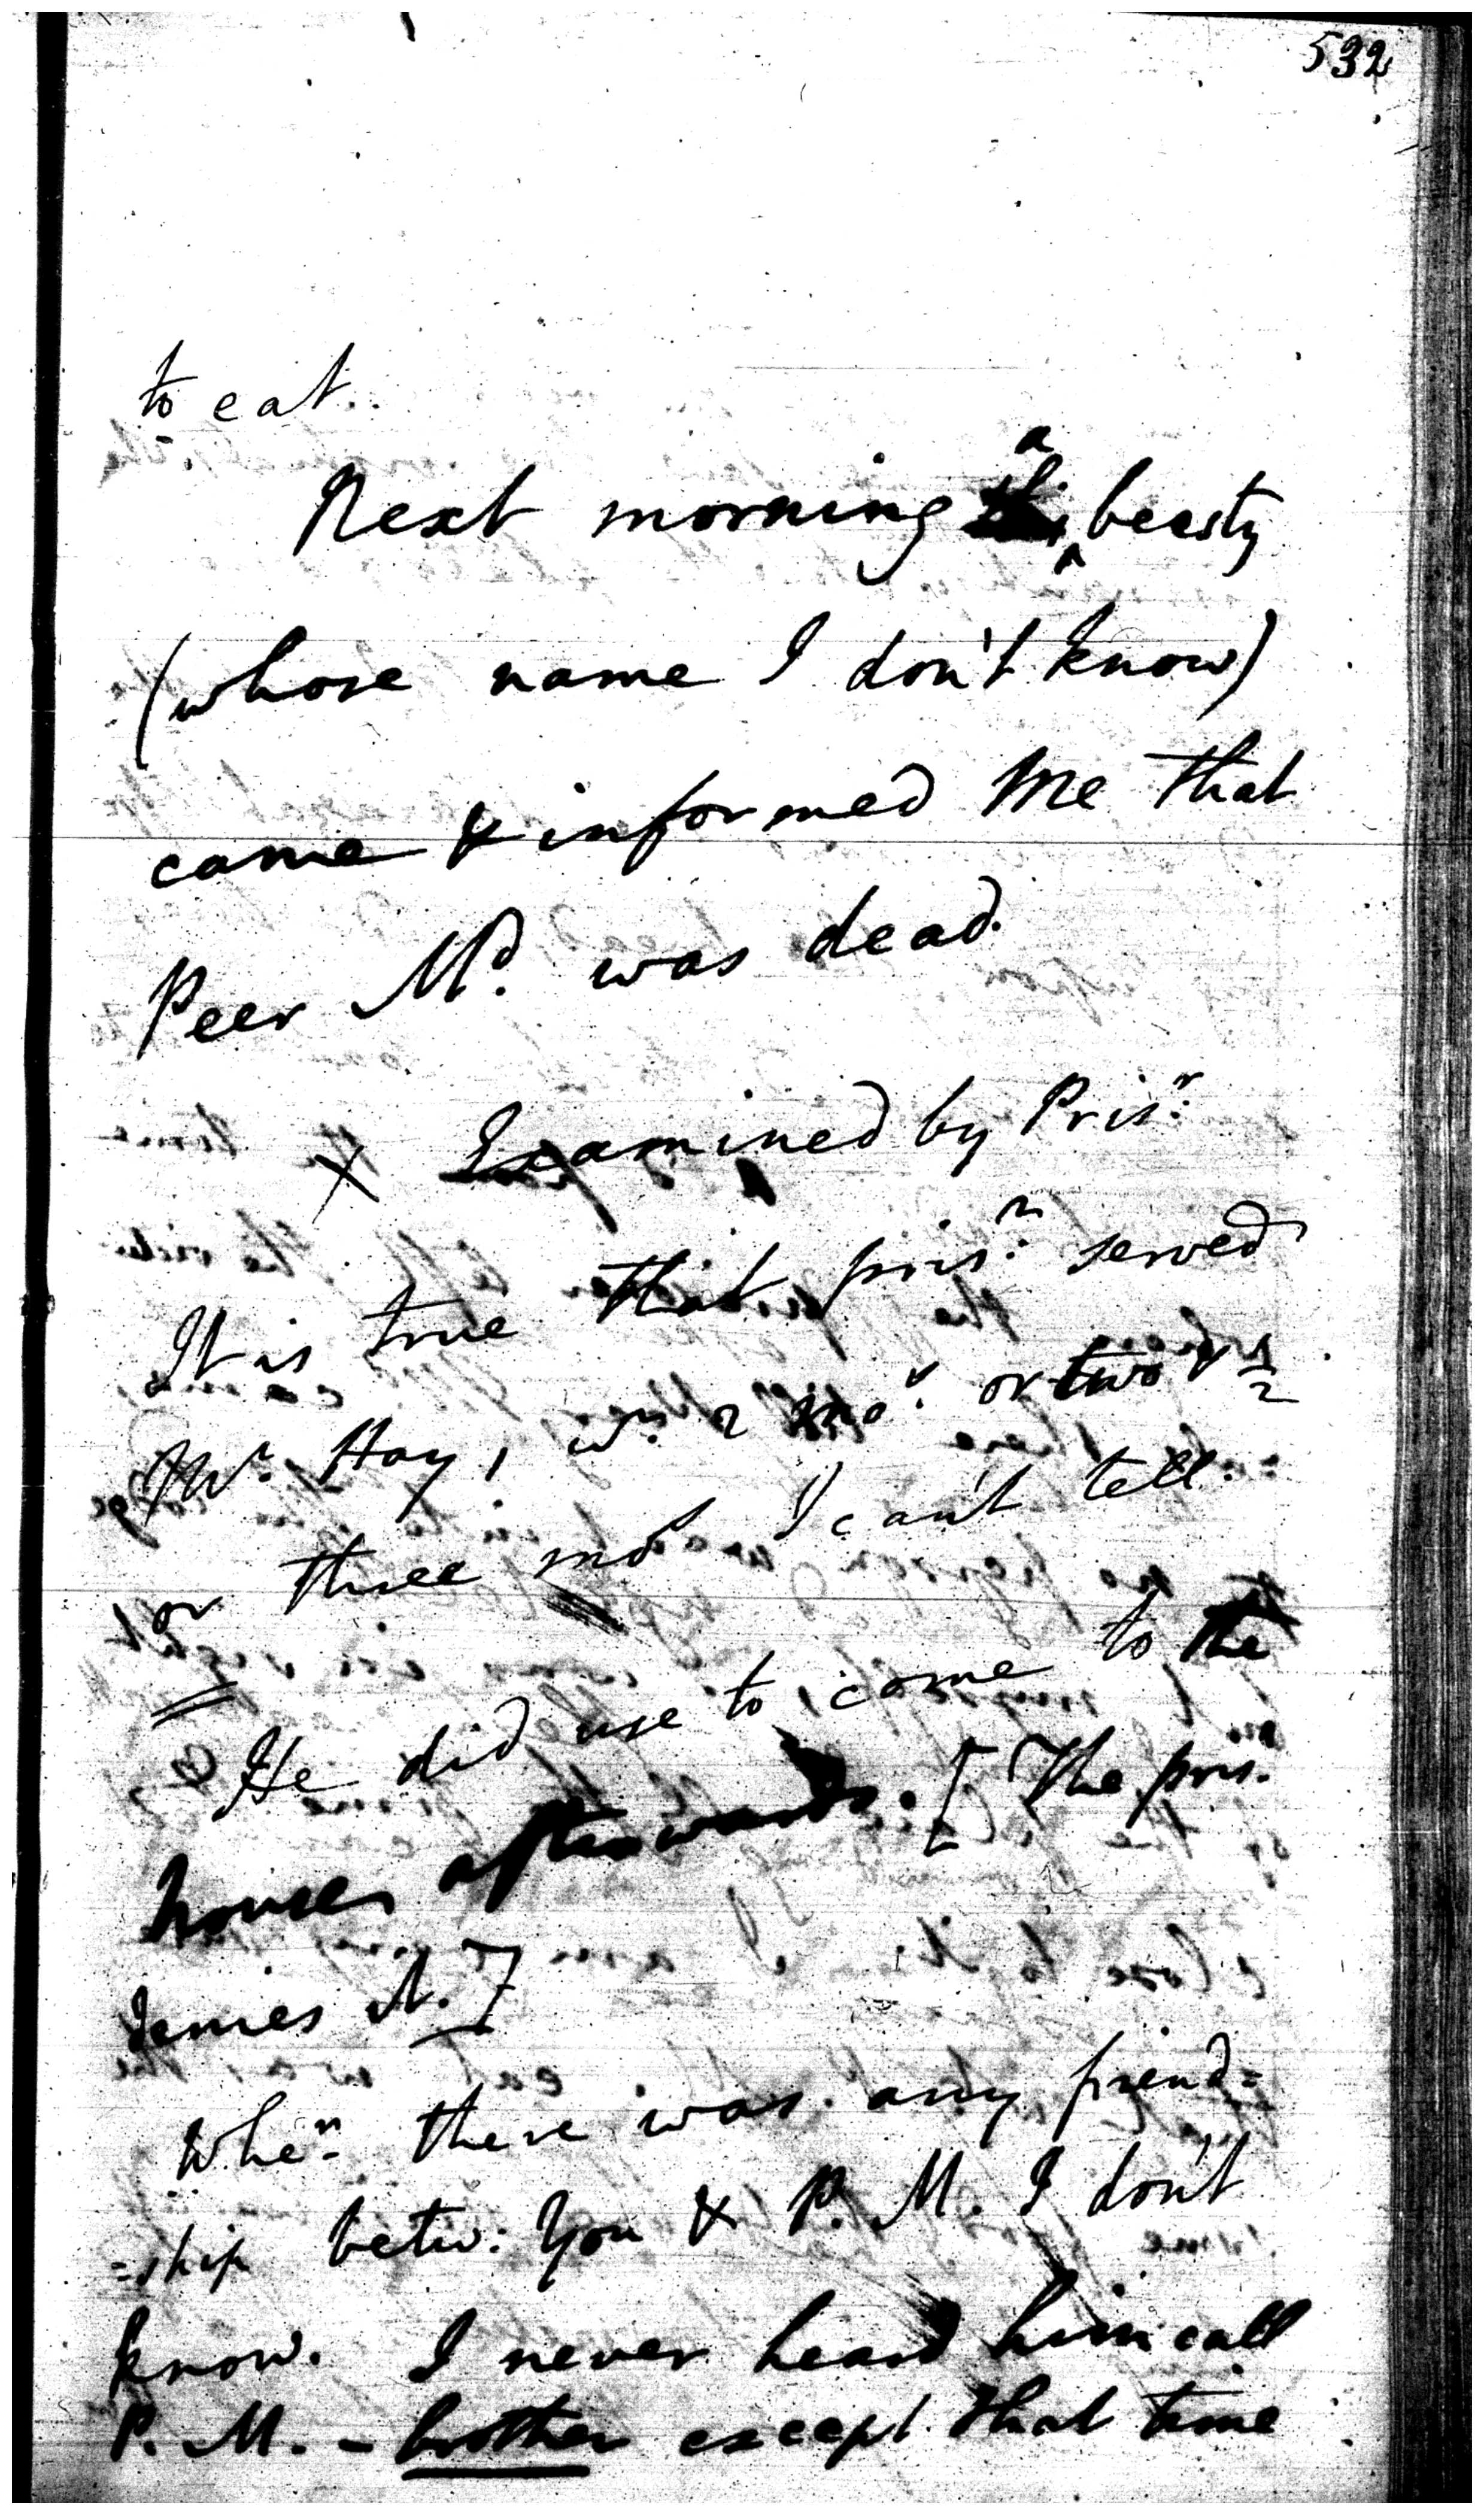 532
to eat.
Next morning a beesty
(whose name I don't know)
came & informed me that
Peer Md. was dead.
X Examined by Prisr.
It is true that prisr. served
Mr. Hay, wr. 2 mos. or two & ½
or three mos. I can't tell.
He did use to come to the
houses afterwards. [The pris.
denies it.]
Wher. there was any friend=
=ship betw: You & P. M. I don't
know. I never heard him call
P. M. - brother except that time